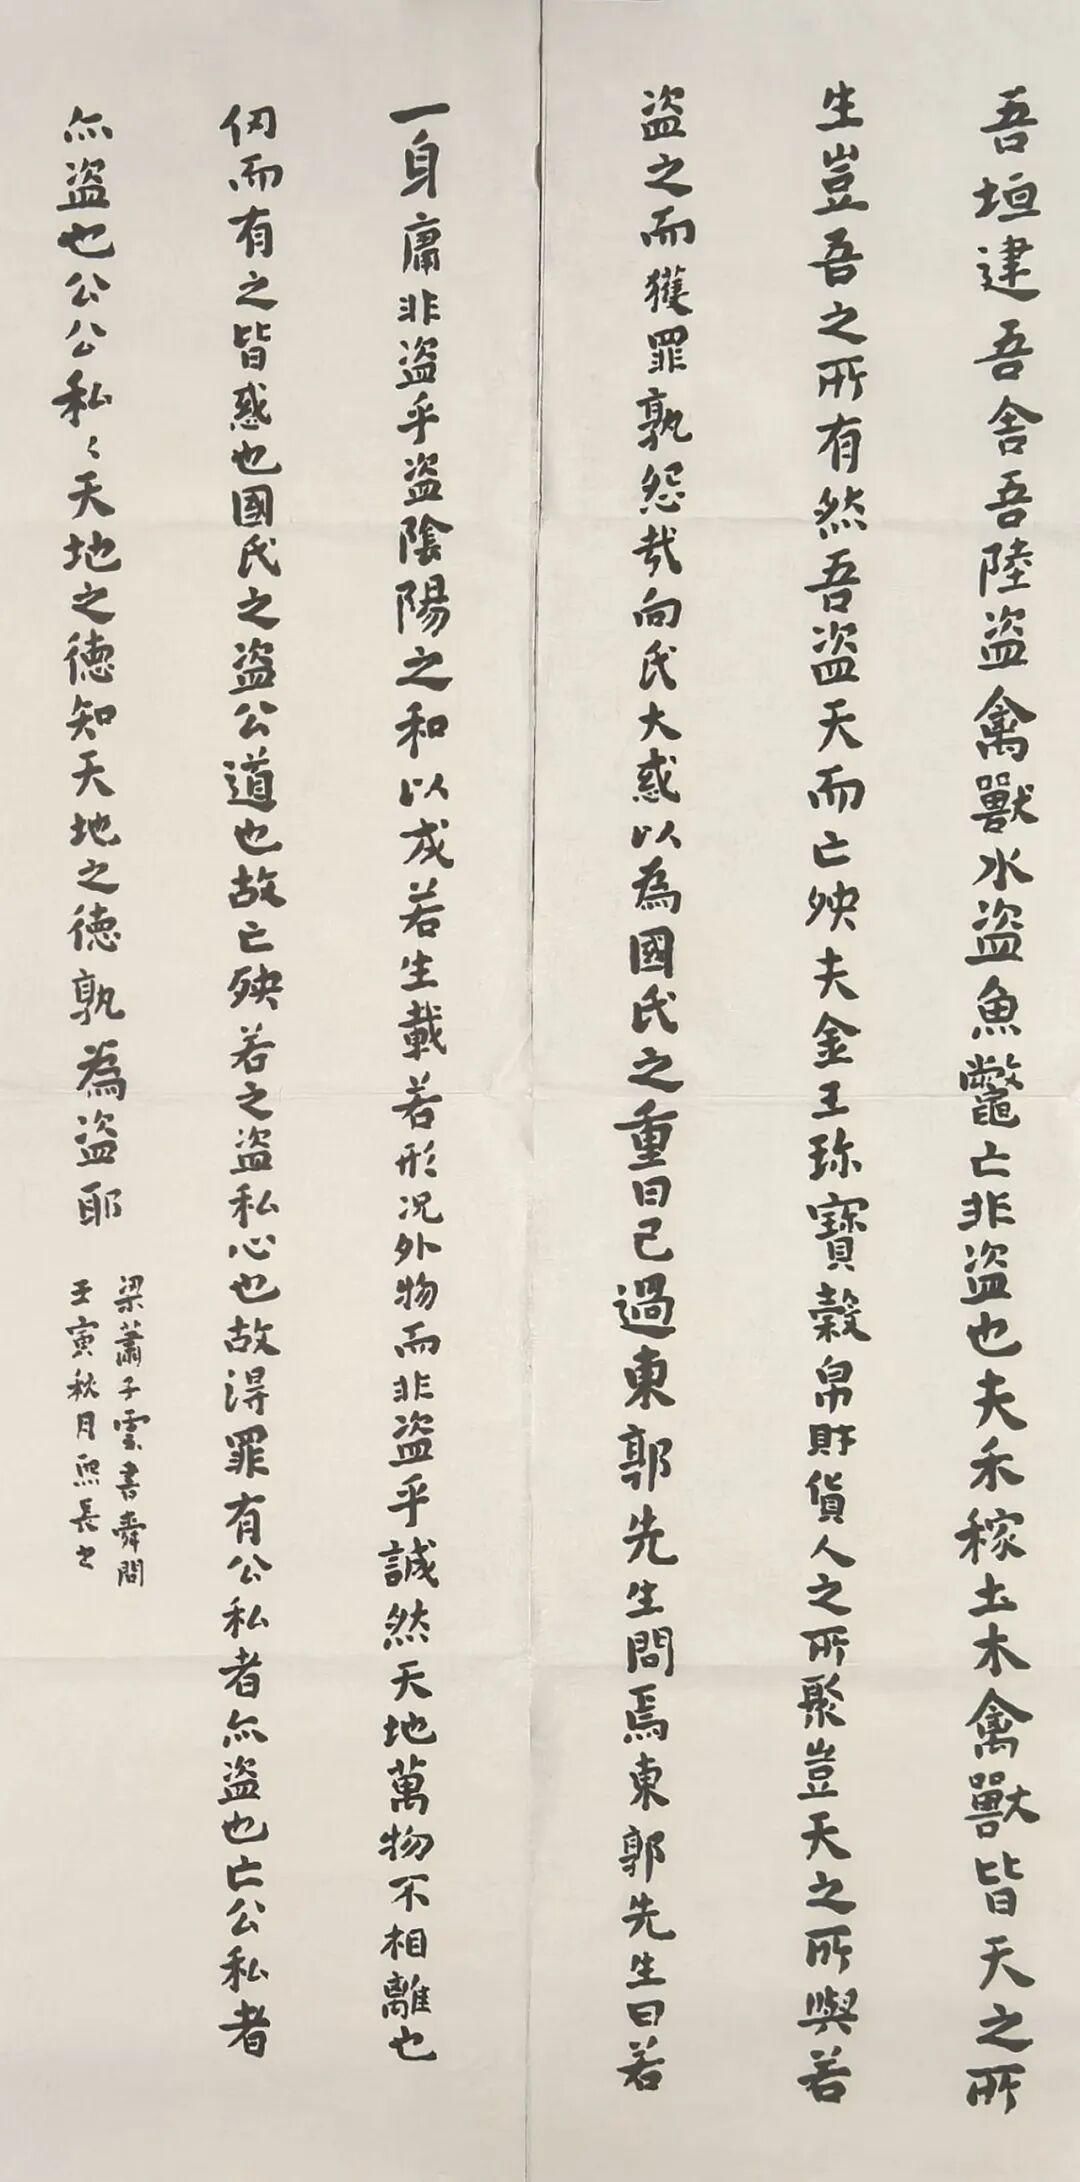 吾垣建吾舍吾陸盜禽獸水盜魚鼈亡非盜也夫禾稼土木禽獸皆天之所
生豈吾之所有然吾盜天而亡殃夫金玉珍寶穀帛財貨人之所聚豈天之所與若
盜之而獲罪孰怨哉向氏大惑以為國氏之重曰己過東郭先生問焉東郭先生曰若
一身庸非盜乎盜陰陽之和以成若生載若形況外物而非盜乎誠然天地萬物不相離也
仞而有之皆惑也國氏之盜公道也故亡殃若之盜私心也故得罪有公私者亦盜也亡公私者
亦盜也公公私〻天地之德知天地之德孰為盜耶
梁蕭子雲書舜問
壬寅秋月熙長书